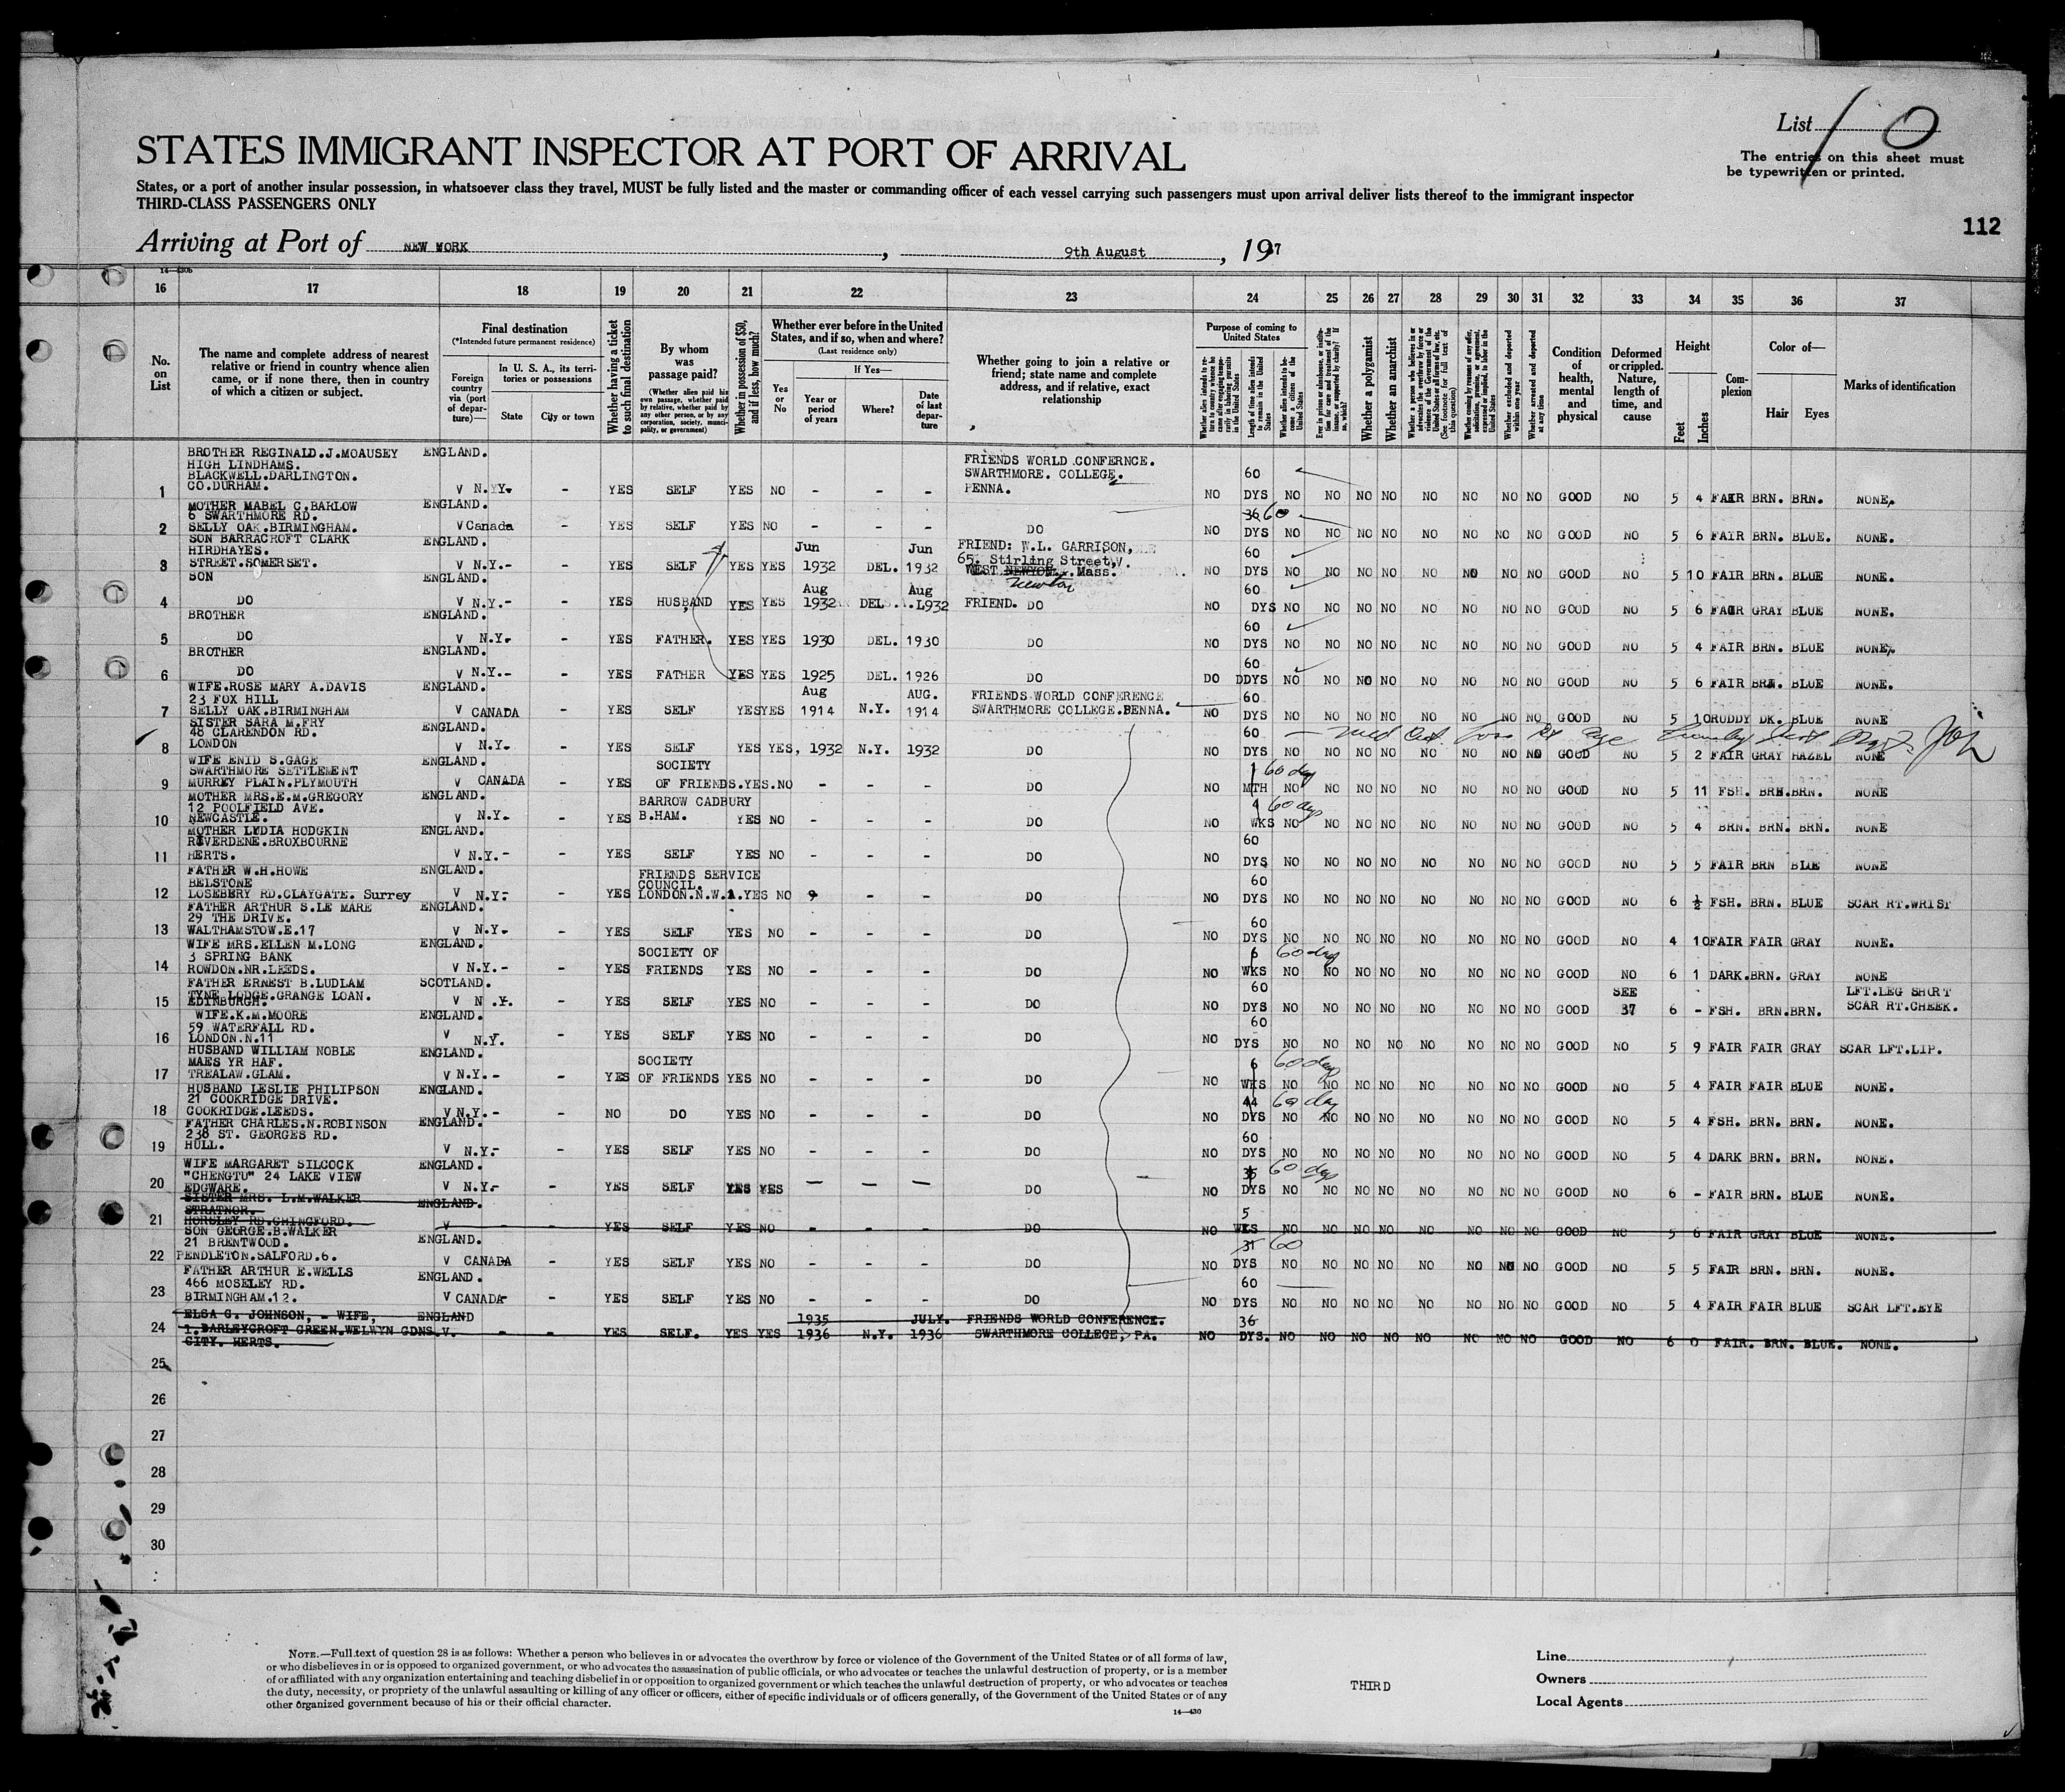 List 10
The entries on this sheet must
be typewritten or printed.
STATES IMMIGRANT INSPECTOR AT PORT OF ARRIVAL
States, or a port of another insular possession, in whatsoever class they travel, MUST be fully listed and the master or commanding officer of each vessel carrying such passengers must upon arrival deliver lists thereof to the immigrant inspector
THIRD-CLASS PASSENGERS ONLY
112
Arriving at Port of NEW YORK, 9th August, 1937
14—430b
16 17 18 19 20 21 22 23 24 25 26 27 28 29 30 31 32 33 34 35 36 37
No. on List
The name and complete address of nearest relative or friend in country whence alien came, or if none there, then in country of which a citizen or subject.
Final destination
(*Intended future permanent residence)
Foreign country via (port of departure)—
In U. S. A., its territories or possessions
State
City or town
Whether having a ticket to such final destination
By whom was passage paid?
(Whether alien paid his own passage, whether paid by relative, whether paid by any other person, or by any corporation, society, municipality, or government)
Whether in possession of $50, and if less, how much?
Whether ever before in the United States, and if so, when and where?
(Last residence only)
Yes or No
If Yes—
Year or period of years
Where?
Date of last departure
Whether going to join a relative or friend; state name and complete address, and if relative, exact relationship
Purpose of coming to United States
Length of time alien intends to remain in the United States
Whether alien intends to become a citizen of the United States
Whether a polygamist
Whether an anarchist
Whether excluded and deported within one year
Whether arrested and deported at any time
Condition of health, mental and physical
Deformed or crippled. Nature, length of time, and cause
Height
Feet
Inches
Complexion
Color of—
Hair
Eyes
Marks of identification
BROTHER REGINALD.J.MOAUSEY ENGLAND.
HIGH LINDHAMS. FRIENDS WORLD CONFERNCE.
BLACKWELL.DARLINGTON. SWARTHMORE. COLLEGE. 60
1 CO.DURHAM. V N.Y. - YES SELF YES NO - - - PENNA. NO DYS NO NO NO NO NO NO NO NO GOOD NO 5 4 FAIR BRN. BRN. NONE.
MOTHER MABEL C.BARLOW ENGLAND.
6 SWARTHMORE RD. 36 60
2 SELLY OAK.BIRMINGHAM. V Canada - YES SELF YES NO - - - DO NO DYS NO NO NO NO NO NO NO NO GOOD NO 5 6 FAIR BRN. BLUE. NONE.
SON BARRACROFT CLARK ENGLAND. Jun Jun FRIEND: W.L. GARRISON,
HIRDHAYES. 65. Stirling Street, 60
3 STREET.SOMERSET. V N.Y.- - YES SELF YES YES 1932 DEL. 1932 WEST NEWTON. Mass. NO DYS NO NO NO NO NO NO NO NO GOOD NO 5 10 FAIR BRN. BLUE NONE.
Newton
SON ENGLAND. Aug Aug 60
4 DO V N.Y.- - YES HUSBAND YES YES 1932 DEL. 1932 FRIEND. DO NO DYS NO NO NO NO NO NO NO NO GOOD NO 5 6 FAIR GRAY BLUE NONE.
BROTHER ENGLAND. 60
5 DO V N.Y.- - YES FATHER. YES YES 1930 DEL. 1930 DO NO DYS NO NO NO NO NO NO NO NO GOOD NO 5 4 FAIR BRN. BLUE NONE.
BROTHER ENGLAND. 60
6 DO V N.Y.- - YES FATHER YES YES 1925 DEL. 1926 DO DYS NO NO NO NO NO NO NO NO GOOD NO 5 6 FAIR BRN. BLUE NONE.
WIFE.ROSE MARY A.DAVIS ENGLAND. Aug AUG. FRIENDS WORLD CONFERENCE
23 FOX HILL 60
7 SELLY OAK.BIRMINGHAM V CANADA - YES SELF YES YES 1914 N.Y. 1914 SWARTHMORE COLLEGE.PENNA. NO DYS NO NO NO NO NO NO NO NO GOOD NO 5 10 RUDDY DK. BLUE NONE
SISTER SARA M.FRY ENGLAND.
48 CLARENDON RD. 60 — med Cert
8 LONDON V N.Y.- - YES SELF YES YES, 1932 N.Y. 1932 DO NO DYS NO NO NO NO NO NO NO NO GOOD NO 5 2 FAIR GRAY HAZEL NONE
WIFE ENID S.GAGE ENGLAND. SOCIETY
SWARTHMORE SETTLEMENT 1 60 day
9 MURREY PLAIN.PLYMOUTH V CANADA - YES OF FRIENDS.YES.NO - - - DO NO MTH NO NO NO NO NO NO NO NO GOOD NO 5 11 FSH. BRN.BRN. NONE
MOTHER MRS.E.M.GREGORY ENGLAND. BARROW CADBURY
12 POOLFIELD AVE. 4 60 days
10 NEWCASTLE. V N.Y.- - YES B.HAM. YES NO - - - DO NO WKS NO NO NO NO NO NO NO NO GOOD NO 5 4 BRN. BRN. BRN. NONE
MOTHER LYDIA HODGKIN ENGLAND.
RIVERDENE.BROXBOURNE 60
11 HERTS. V N.Y.- - YES SELF YES NO - - - DO NO DYS NO NO NO NO NO NO NO NO GOOD NO 5 5 FAIR BRN BLUE NONE
FATHER W.H.HOWE ENGLAND. FRIENDS SERVICE
BELSTONE COUNCIL. 60
12 LOSEBERY RD.CLAYGATE. Surrey V N.Y.- - YES LONDON.N.W.1.YES NO - - - DO NO DYS NO NO NO NO NO NO NO NO GOOD NO 6 ½ FSH. BRN. BLUE SCAR RT.WRIST
FATHER ARTHUR S.LE MARE ENGLAND.
29 THE DRIVE. 60
13 WALTHAMSTOW.E.17 V N.Y.- - YES SELF YES NO - - - DO NO DYS NO NO NO NO NO NO NO NO GOOD NO 4 10 FAIR FAIR GRAY NONE.
WIFE MRS.ELLEN M.LONG ENGLAND. SOCIETY OF
3 SPRING BANK 6 60 day
14 ROWDON.NR.LEEDS. V N.Y.- - YES FRIENDS YES NO - - - DO NO WKS NO NO NO NO NO NO NO NO GOOD NO 6 1 DARK.BRN. GRAY NONE
FATHER ERNEST B.LUDLAM SCOTLAND.
TYNE LODGE.GRANGE LOAN. 60 SEE LFT.LEG SHORT
15 EDINBURGH. V N.Y. - YES SELF YES NO - - - DO NO DYS NO NO NO NO NO NO NO NO GOOD 37 6 - FSH. BRN.BRN. SCAR RT.CHEEK.
WIFE.K.M.MOORE ENGLAND.
59 WATERFALL RD. 60
16 LONDON.N.11 V N.Y. - YES SELF YES NO - - - DO NO DYS NO NO NO NO NO NO NO NO GOOD NO 5 9 FAIR FAIR GRAY SCAR LFT.LIP.
HUSBAND WILLIAM NOBLE ENGLAND. SOCIETY
MAES YR HAF. 6 60 day
17 TREALAW.GLAM. V N.Y.- - YES OF FRIENDS YES NO - - - DO NO WKS NO NO NO NO NO NO NO NO GOOD NO 5 4 FAIR FAIR BLUE NONE.
HUSBAND LESLIE PHILIPSON ENGLAND.
21 COOKRIDGE DRIVE. 44 60 day
18 COOKRIDGE.LEEDS. V N.Y.- - NO DO YES NO - - - DO NO DYS NO NO NO NO NO NO NO NO GOOD NO 5 4 FSH. BRN. BRN. NONE.
FATHER CHARLES.N.ROBINSON ENGLAND.
238 ST. GEORGES RD. 60
19 HULL. V N.Y.- - YES SELF YES NO - - - DO NO DYS NO NO NO NO NO NO NO NO GOOD NO 5 4 DARK BRN. BRN. NONE.
WIFE MARGARET SILCOCK ENGLAND.
"CHENGTU" 24 LAKE VIEW 60 days
20 EDGWARE. V N.Y.- - YES SELF YES YES — — — DO NO DYS NO NO NO NO NO NO NO NO GOOD NO 6 - FAIR BRN. BLUE NONE.
SISTER MRS. L.M.WALKER ENGLAND.
STRATNOR. 5
21 HORSLEY RD.CHINGFORD. V - - YES SELF YES NO - - - DO NO WKS NO NO NO NO NO NO NO NO GOOD NO 5 6 FAIR GRAY BLUE NONE.
SON GEORGE.B.WALKER ENGLAND.
21 BRENTWOOD. 31 60
22 PENDLETON.SALFORD.6. V CANADA - YES SELF YES NO - - - DO NO DYS NO NO NO NO NO NO NO NO GOOD NO 5 5 FAIR BRN. BRN. NONE.
FATHER ARTHUR E.WELLS ENGLAND.
466 MOSELEY RD. 60
23 BIRMINGHAM.12. V CANADA - YES SELF YES NO - - - DO NO DYS NO NO NO NO NO NO NO NO GOOD NO 5 4 FAIR FAIR BLUE SCAR LFT.EYE
ELSA C. JOHNSON, - WIFE, ENGLAND 1935 JULY. FRIENDS WORLD CONFERENCE. 36
24 1.BARLEYCROFT GREEN.WELWYN GDNS.V. - - YES SELF. YES YES 1936 N.Y. 1936 SWARTHMORE COLLEGE, PA. NO DYS. NO NO NO NO NO NO NO NO GOOD NO 6 0 FAIR. BRN. BLUE. NONE.
CITY. HERTS.
25
26
27
28
29
30
NOTE.—Full text of question 28 is as follows: Whether a person who believes in or advocates the overthrow by force or violence of the Government of the United States or of all forms of law,
or who disbelieves in or is opposed to organized government, or who advocates the assassination of public officials, or who advocates or teaches the unlawful destruction of property, or is a member
of or affiliated with any organization entertaining and teaching disbelief in or opposition to organized government or which teaches the unlawful destruction of property, or who advocates or teaches
the duty, necessity, or propriety of the unlawful assaulting or killing of any officer or officers, either of specific individuals or of officers generally, of the Government of the United States or of any
other organized government because of his or their official character.
14—430
THIRD
Line
Owners
Local Agents